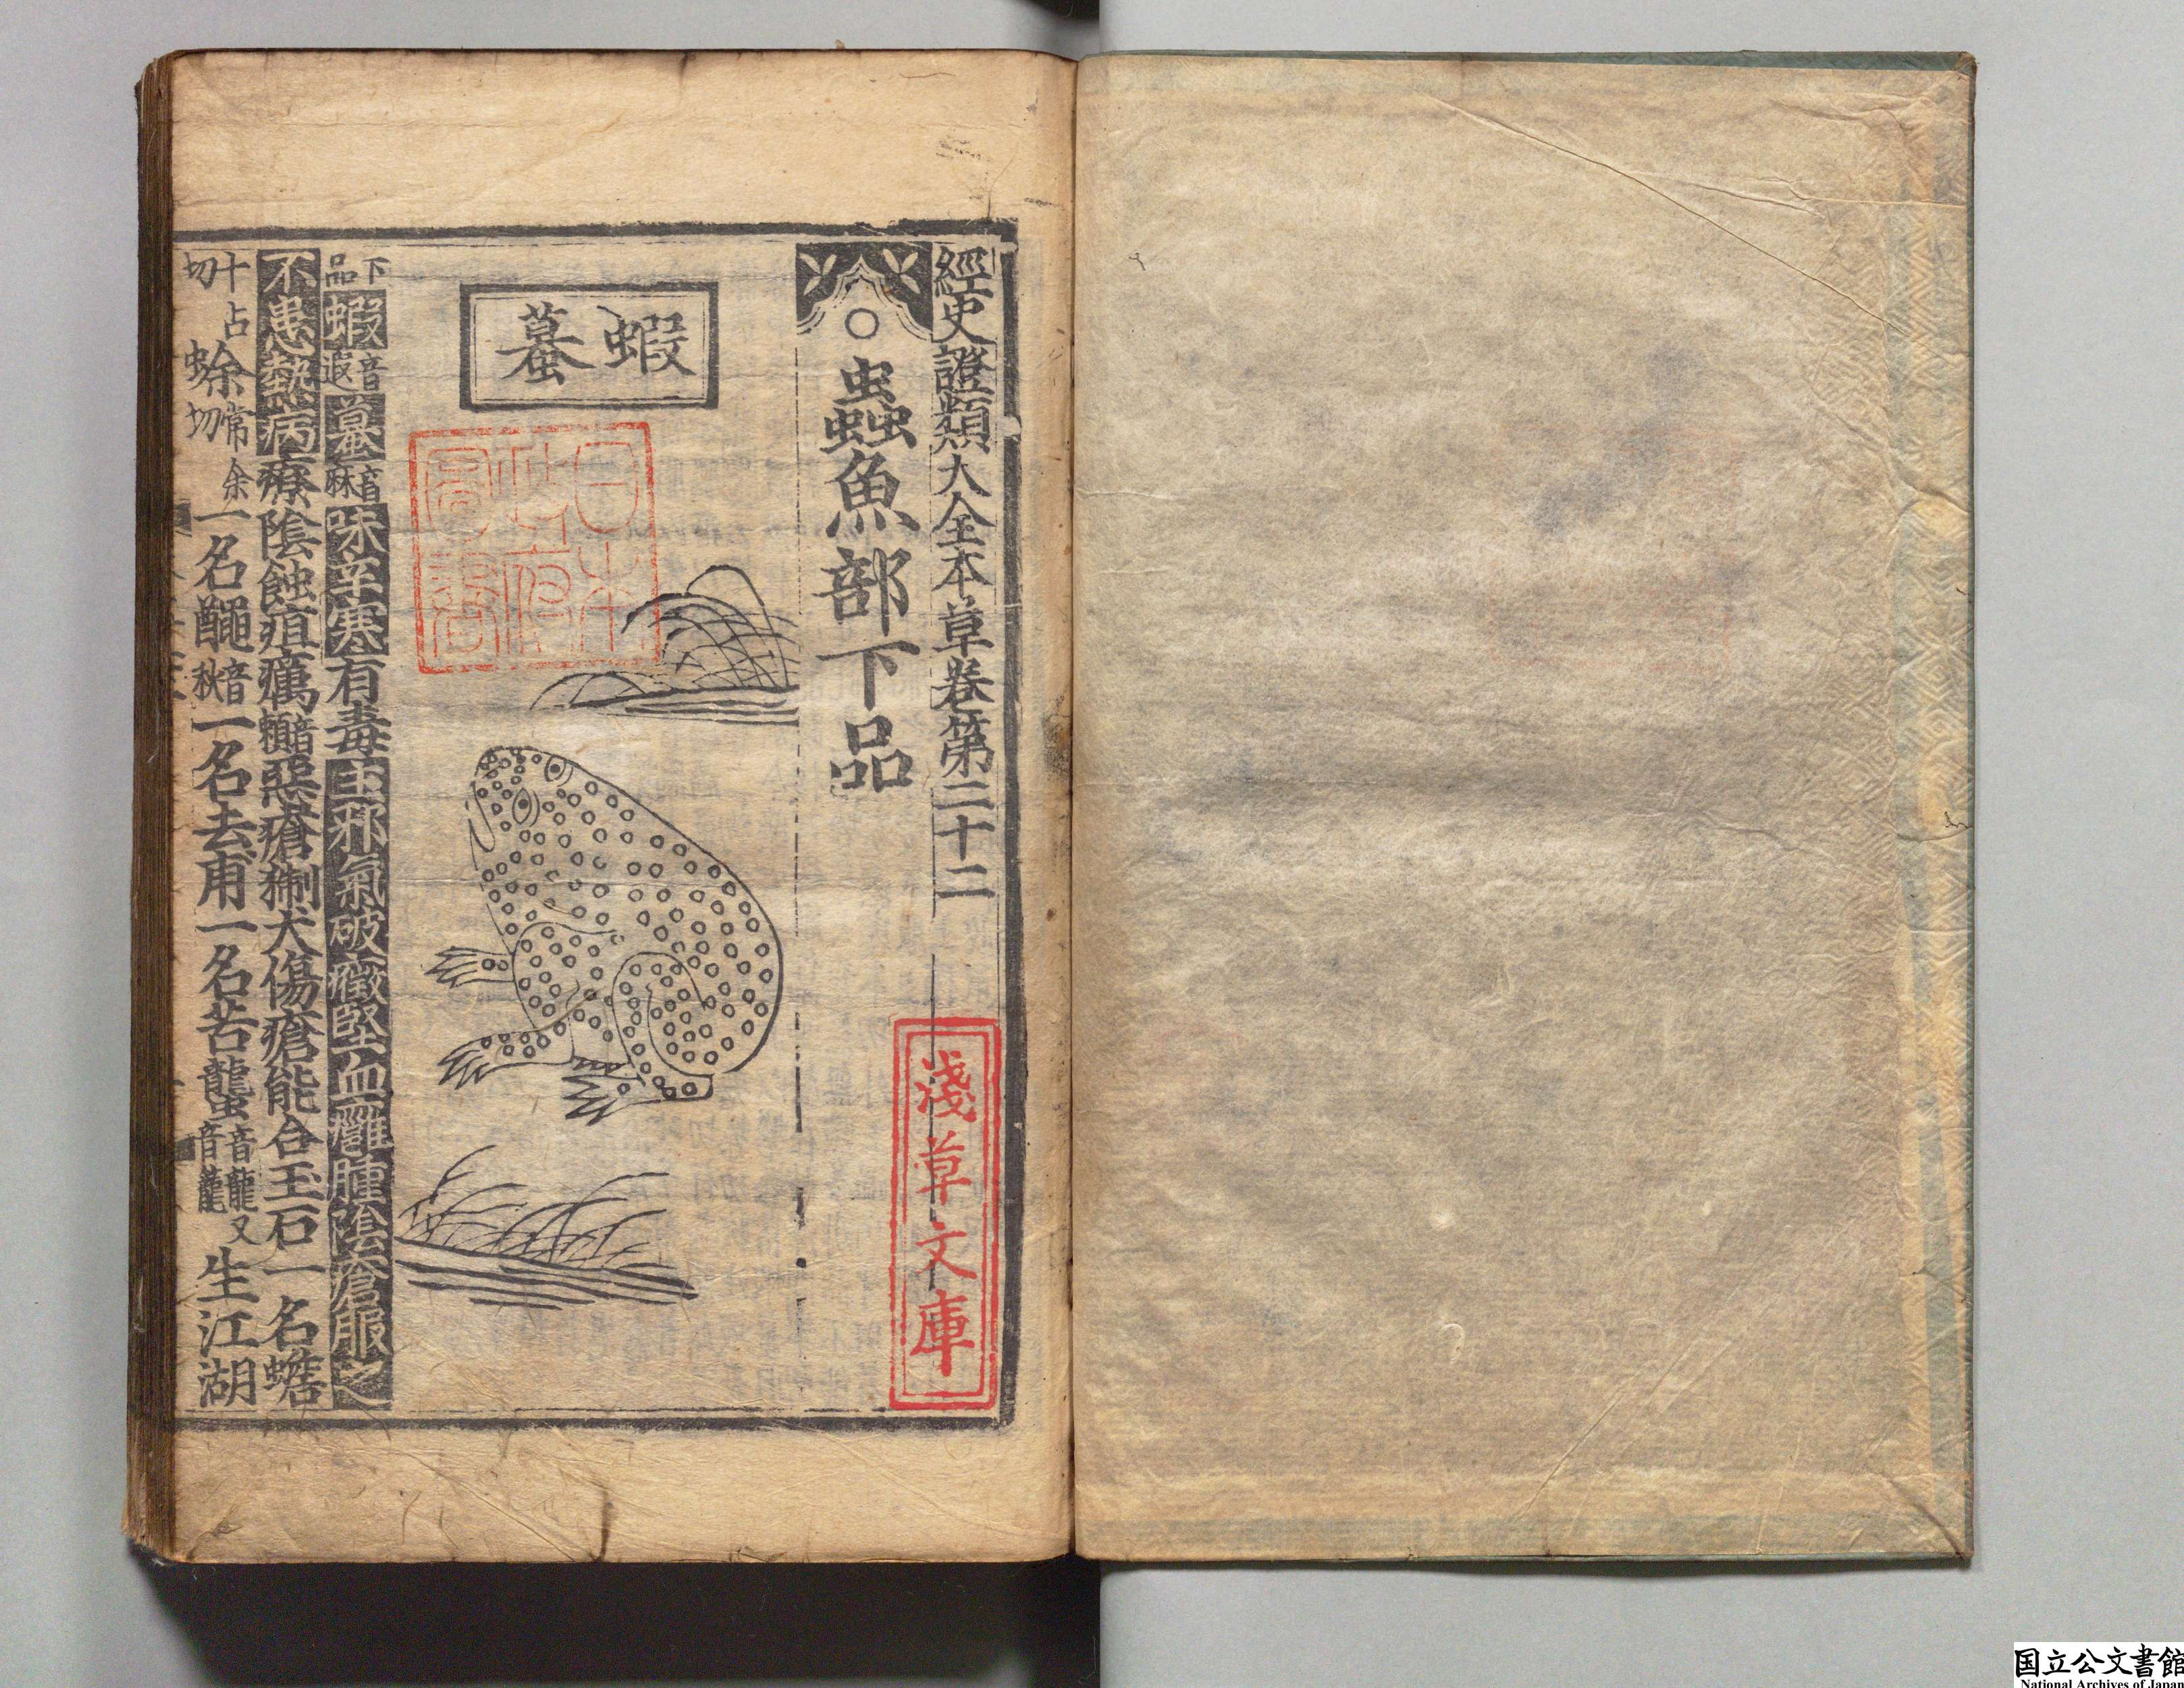 經史證類大全本草卷第二十二
○蟲魚部下品
蝦蟇
下品蝦音遐蟇音麻味辛寒有毒主邪氣破癥堅血癰腫陰瘡服之
不患熱病療陰蝕疽癘音賴惡瘡猘犬傷瘡能合玉石一名蟾
十占切蜍常余切一名𪓰音秋一名去甫一名苦蠪音龍又音蘢生江湖
淺草文庫
日本政府圖書
国立公文書館
National Archives of Japan